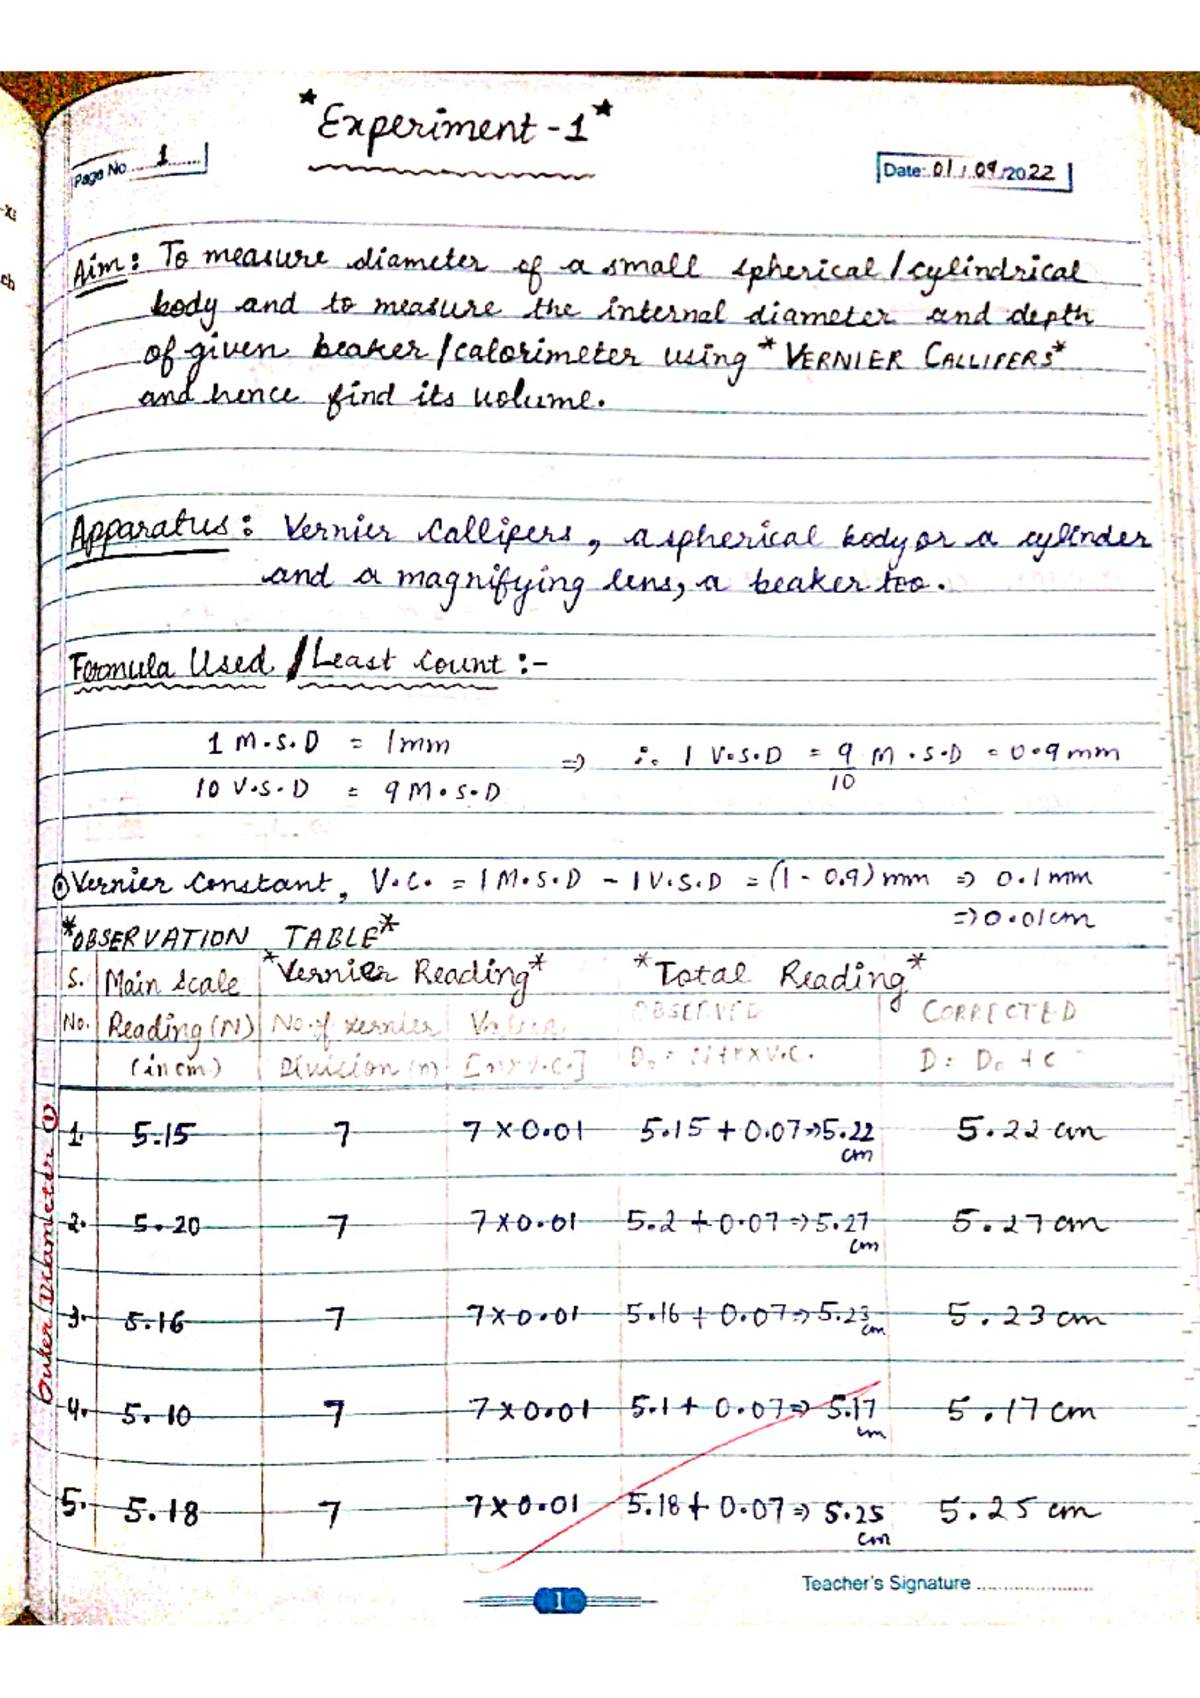 *Experiment-1*
Page No. 1
Date: 01/09/2022
-xi
ch
Aim: To measure diameter of a small spherical/cylindrical
body and to measure the internal diameter and depth
of given beaker/calorimeter using *VERNIER CALLIPERS*
and hence find its volume.
Apparatus: Vernier Callipers, a spherical body or a cylinder
and a magnifying lens, a beaker too.
Formula Used/Least Count :-
1 M.S.D = 1mm
10 V.S.D = 9 M.S.D
=> ∴ 1 V.S.D = 9/10 M.S.D = 0.9mm
Vernier Constant, V.C. = 1 M.S.D - 1 V.S.D = (1 - 0.9) mm => 0.1mm
=> 0.01cm
*OBSERVATION TABLE*
S. Main Scale *Vernier Reading* *Total Reading*
No. Reading (N) No. of vernier Value OBSERVED CORRECTED
(in cm) Division (n) [n x V.C.] D₀ = N+n x V.C. D = D₀ + C
Outer Diameter ①
1. 5.15 7 7 x 0.01 5.15 + 0.07 => 5.22 cm 5.22 cm
2. 5.20 7 7 x 0.01 5.2 + 0.07 => 5.27 cm 5.27 cm
3. 5.16 7 7 x 0.01 5.16 + 0.07 => 5.23 cm 5.23 cm
4. 5.10 7 7 x 0.01 5.1 + 0.07 => 5.17 cm 5.17 cm
5. 5.18 7 7 x 0.01 5.18 + 0.07 => 5.25 cm 5.25 cm
Teacher's Signature
1